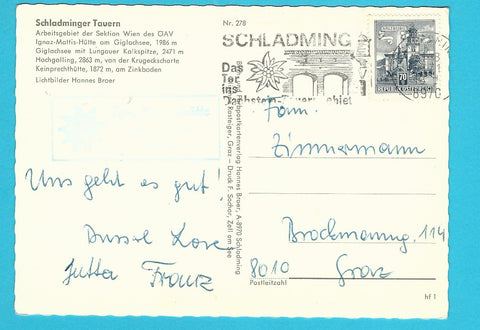 Schladminger Tauern
Arbeitsgebiet der Sektion Wien des ÖAV
Ignaz-Mattis-Hütte am Giglachsee, 1986 m
Giglachsee mit Lungauer Kalkspitze, 2471 m
Hochgolling, 2863 m, von der Krugeckscharte
Keinprechthütte, 1872 m, am Zinkboden
Lichtbilder Hannes Broer
Uns geht es gut!
Jutta Franz
Nr. 278
postkartenverlag Hannes Broer, A-8970 Schladming
Rastelger, Graz – Druck F. Sochor, Zell am See
SCHLADMING
Das
Tor
ins
Dachstein-Tauerngebiet
8970
70
REPUBLIK ÖSTERREICH
Fam.
Zimmermann
Brockmanng. 114
8010 Graz
Postleitzahl
hf 1